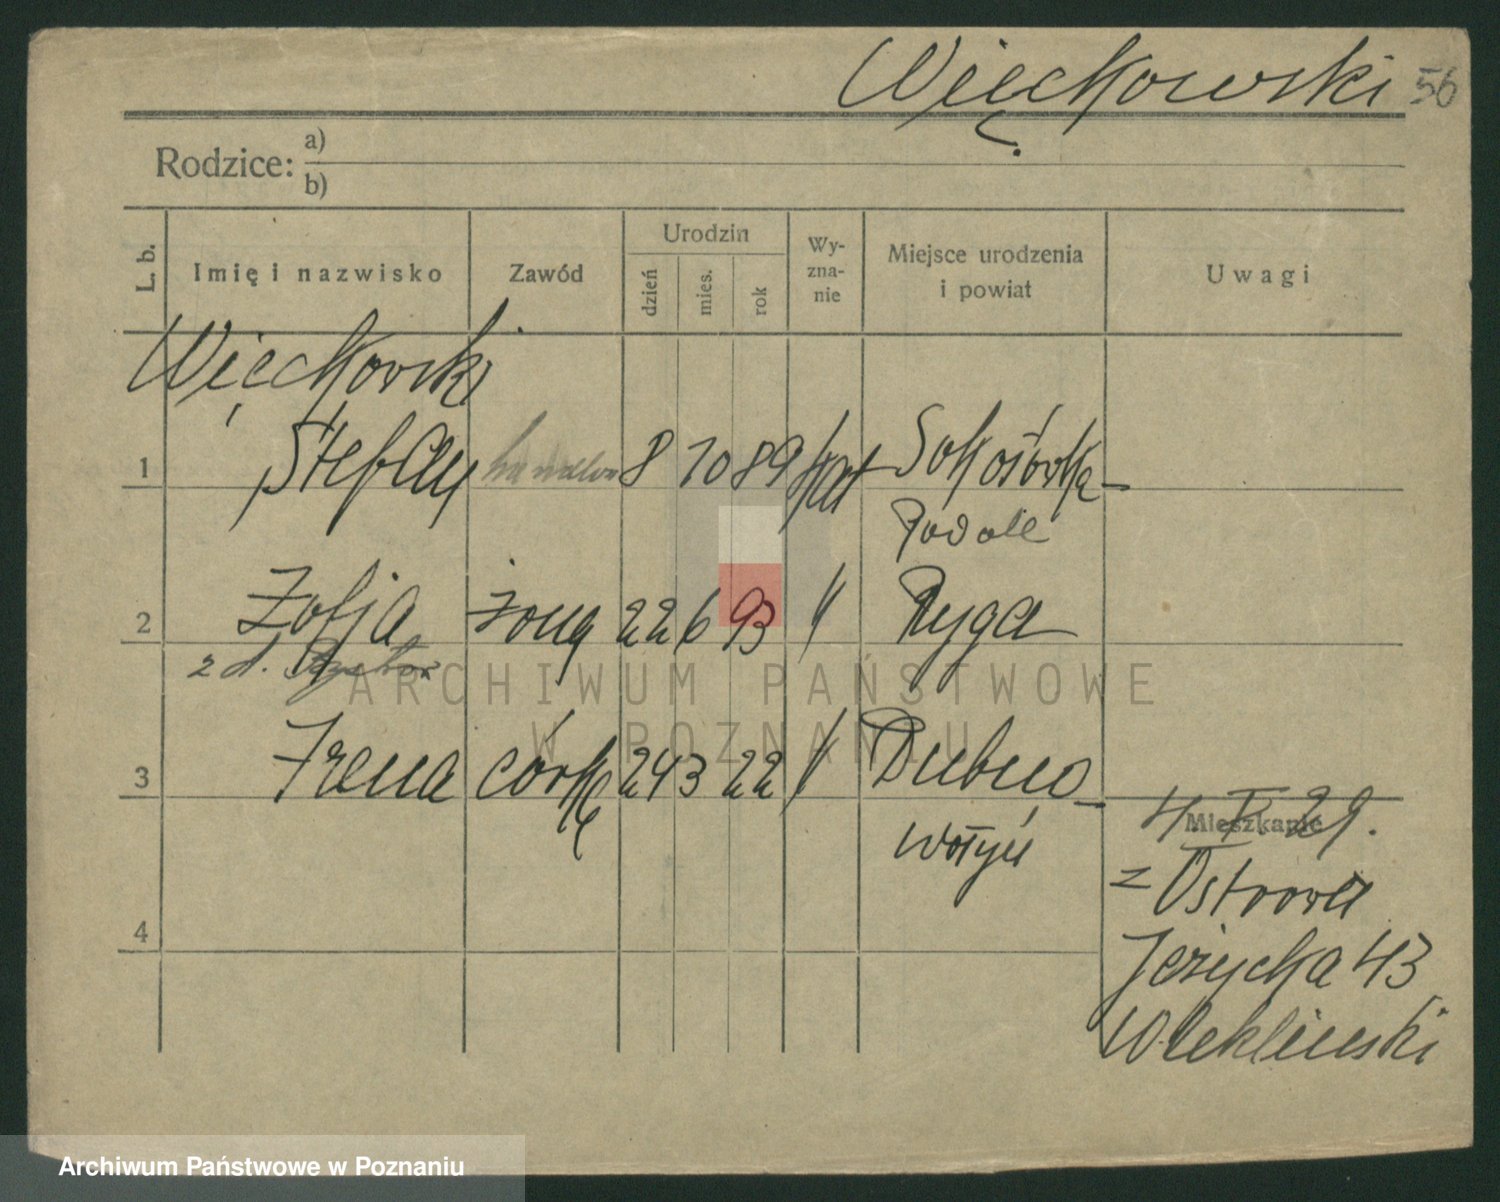 Więckowski 56
Rodzice: a)
b)
L. b. Imię i nazwisko Zawód Urodzin dzień mies. rok Wy-zna-nie Miejsce urodzenia i powiat Uwagi
Więckowski
1 Stefan 8 10 89 kat Sokołówka
Podole
2 Zofja żona 22 6 93 " Ryga
z d.
3 Irena córka 24 3 22 " Dubno
Mieszkanie
Wołyń
z Ostrowa
4
Jeżycka 43
ARCHIWUM PAŃSTWOWE
W POZNANIU
Archiwum Państwowe w Poznaniu